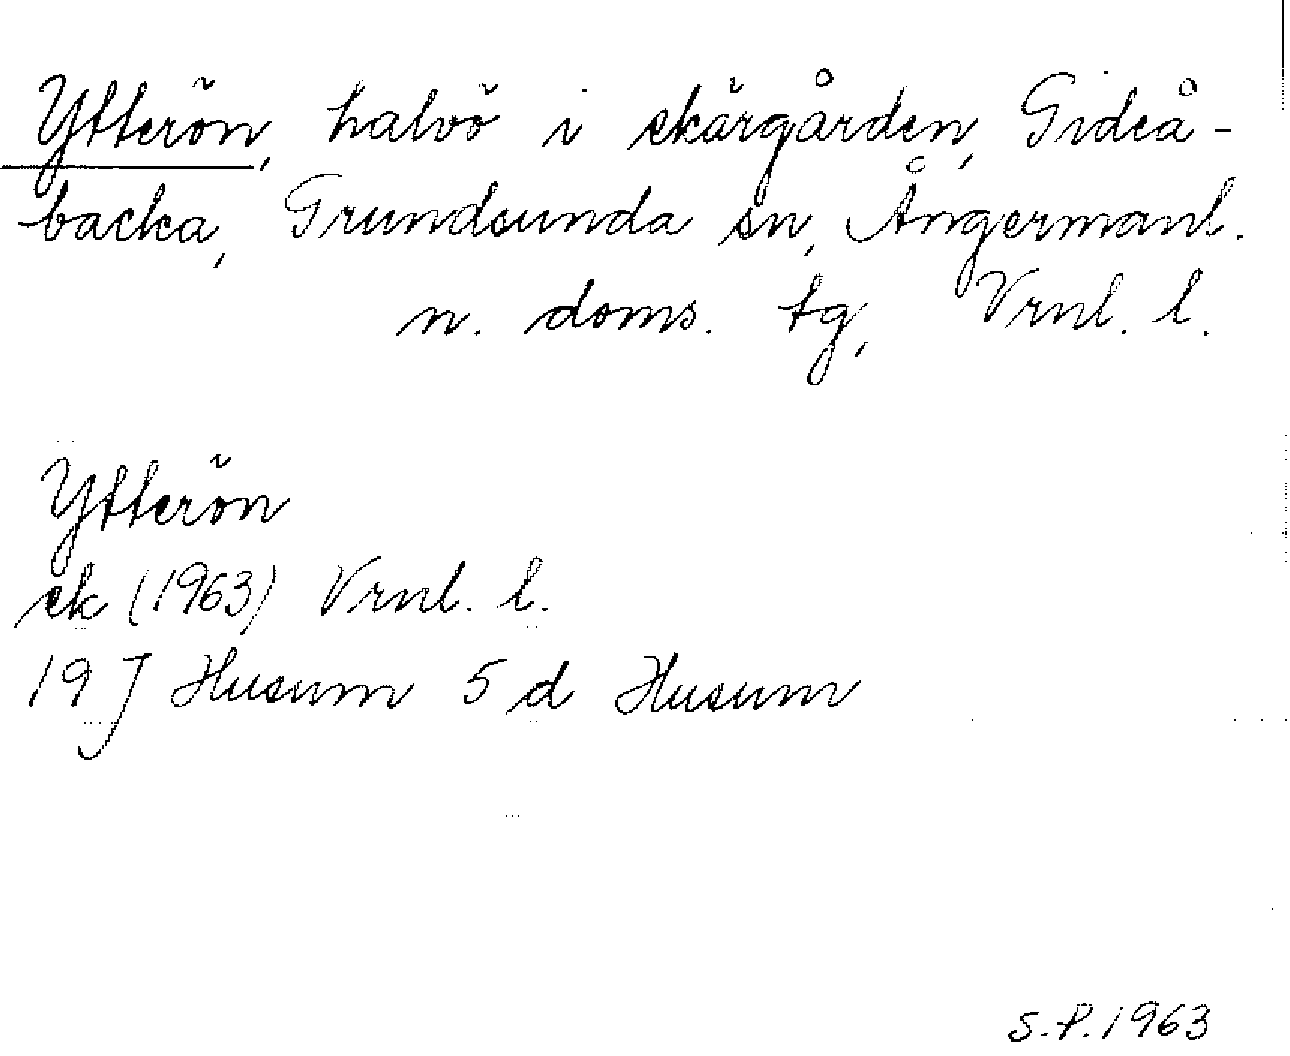 Ytterön, halvö i skärgården, Gideå-
backa, Grundsunda sn, Ångermanl.
n. doms. tg, Vrnl. l.
Ytterön
ek (1963) Vrnl. l.
19 J Husum 5 d Husum
S.P. 1963